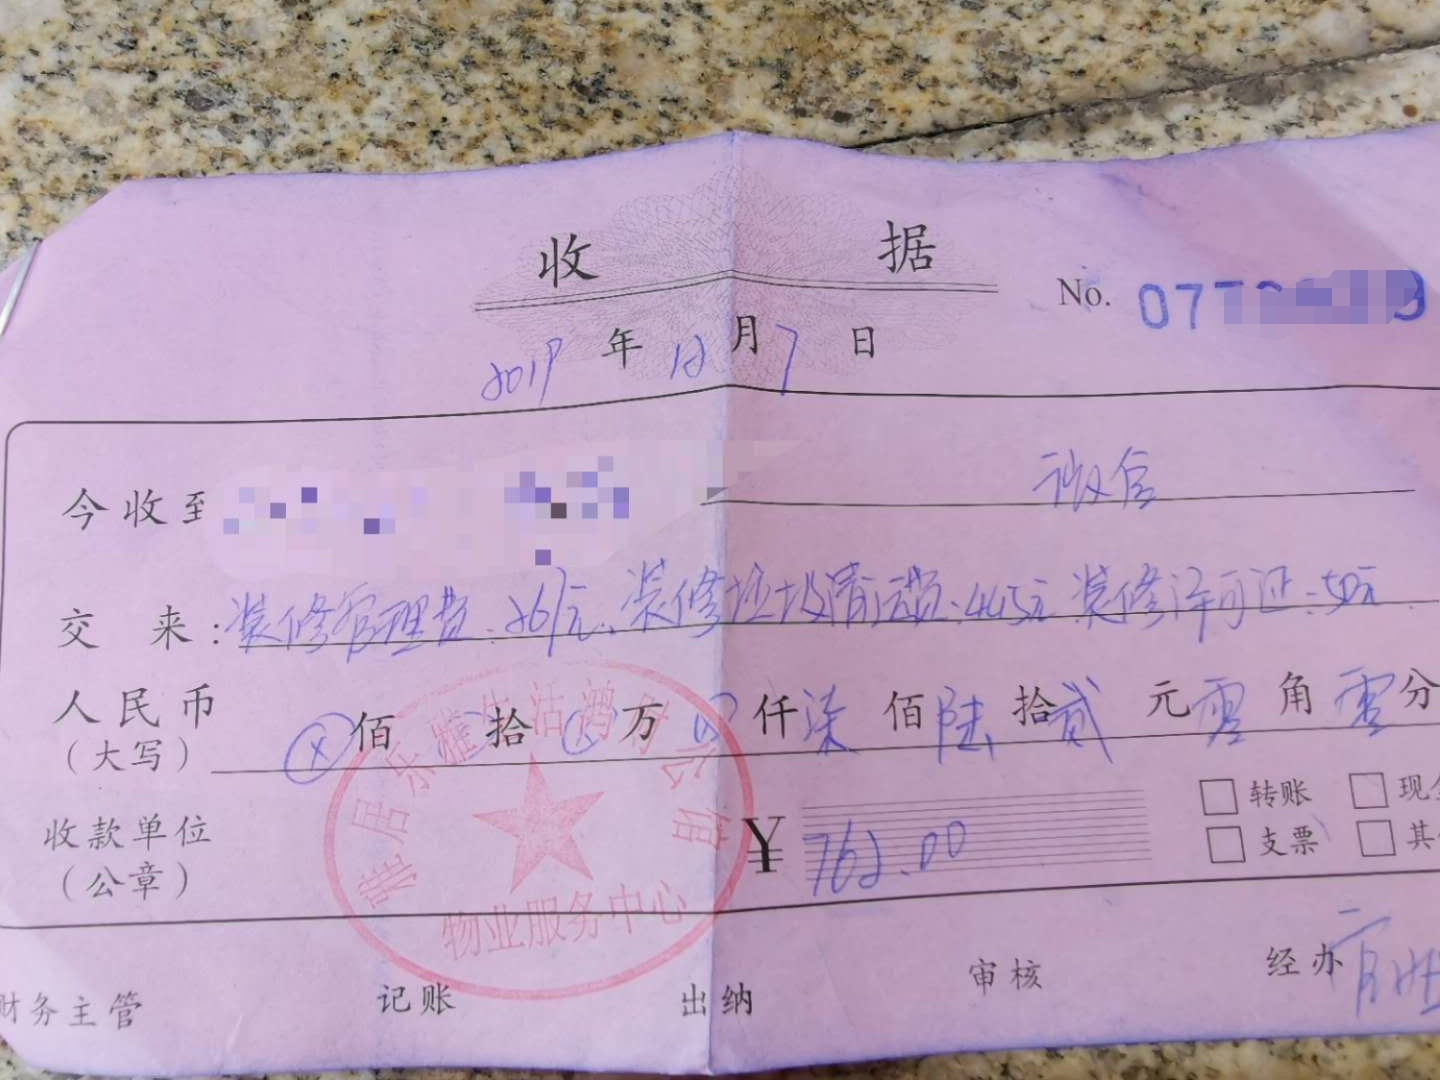 收 据
No. 077
2019 年 12 月 7 日
今收到 微信
交 来：装修管理费：267元、装修垃圾清运费：445元 装修许可证：50元
人民币（大写） ⊗ 佰 拾 万 仟 柒 佰 陆 拾 贰 元 零 角 零 分
收款单位（公章） ¥ 762.00 转账 支票
雅居乐雅生活
物业服务中心
财务主管 记账 出纳 审核 经办